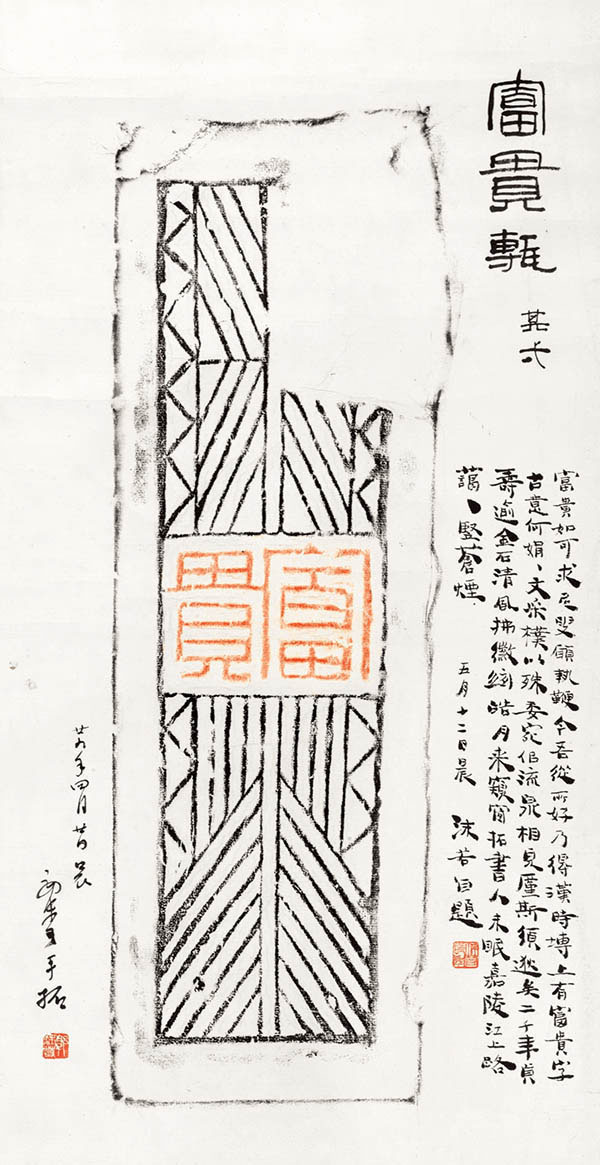 富貴甎
其弍
富貴如可求尼叟願執鞭今吾從所好乃得漢時塼上有富貴字
古意何娟、文采樸以殊委宛佀流泉相見廑斯須逖矣二千年貞
壽逾金石清風拂徽絃皓月來窺窗拓書人未眠嘉陵江上路
藹、豎蒼煙
五月十二日晨 沫若自題
富貴
年四月 晨
手拓